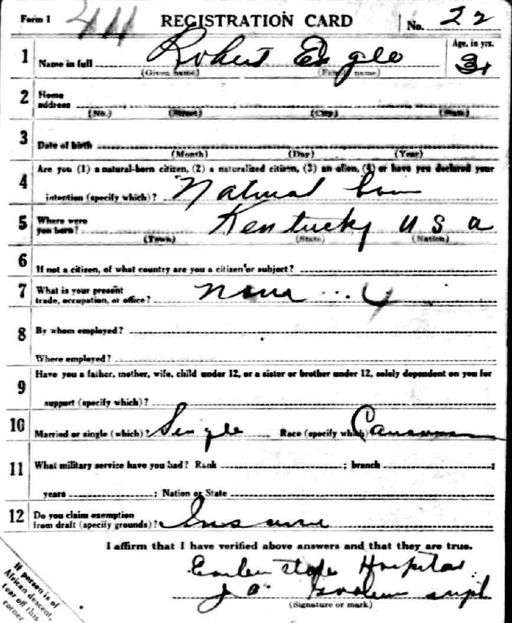 Form 1 411 REGISTRATION CARD No. 22
1 Name in full Robert Engle Age, in yrs. 31
(Given name) (Family name)
2 Home address
(No.) (Street) (City) (State)
3 Date of birth
(Month) (Day) (Year)
4 Are you (1) a natural-born citizen, (2) a naturalized citizen, (3) an alien, (4) or have you declared your
intention (specify which)? Natural born
5 Where were you born? Kentucky U S a
(Town) (State) (Nation)
6 If not a citizen, of what country are you a citizen or subject?
7 What is your present trade, occupation, or office? none
8 By whom employed?
Where employed?
9 Have you a father, mother, wife, child under 12, or a sister or brother under 12, solely dependent on you for
support (specify which)?
10 Married or single (which)? Single Race (specify which)
11 What military service have you had? Rank ; branch ;
years ; Nation or State
12 Do you claim exemption from draft (specify grounds)? Insane
I affirm that I have verified above answers and that they are true.
Eastern State Hospital
J. A. supt
(Signature or mark)
If person is of
African descent,
tear off this
corner